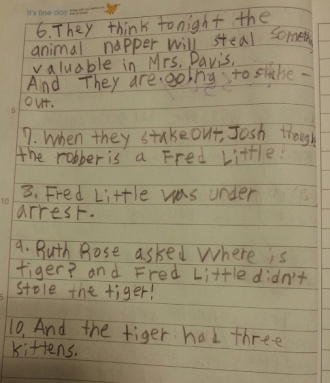 It's fine day
6. They think tonight the
animal napper will steal
valuable in Mrs. Davis.
And They are going to stake-
out.
5
7. When they stakeout, Josh
the robber is a Fred Little!
10
8. Fred Little was under
arrest.
9. Ruth Rose asked Where is
tiger? and Fred Little didn't
stole the tiger!
10. And the tiger had three
kittens.